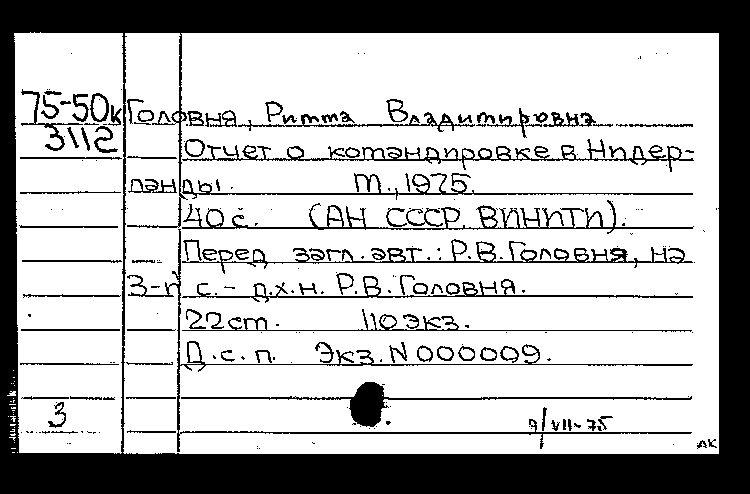 75-50к Головня, Римма Владимировна
3112 Отчет о командировке в Нидер-
ланды. М., 1975.
40 с. (АН СССР. ВИНИТИ).
Перед загл. авт.: Р.В.Головня, на
3-й с. - д.х.н. Р.В.Головня.
22 см. 110 экз.
Д.с.п. Экз. N 000009.
3
9/VII-75
АК